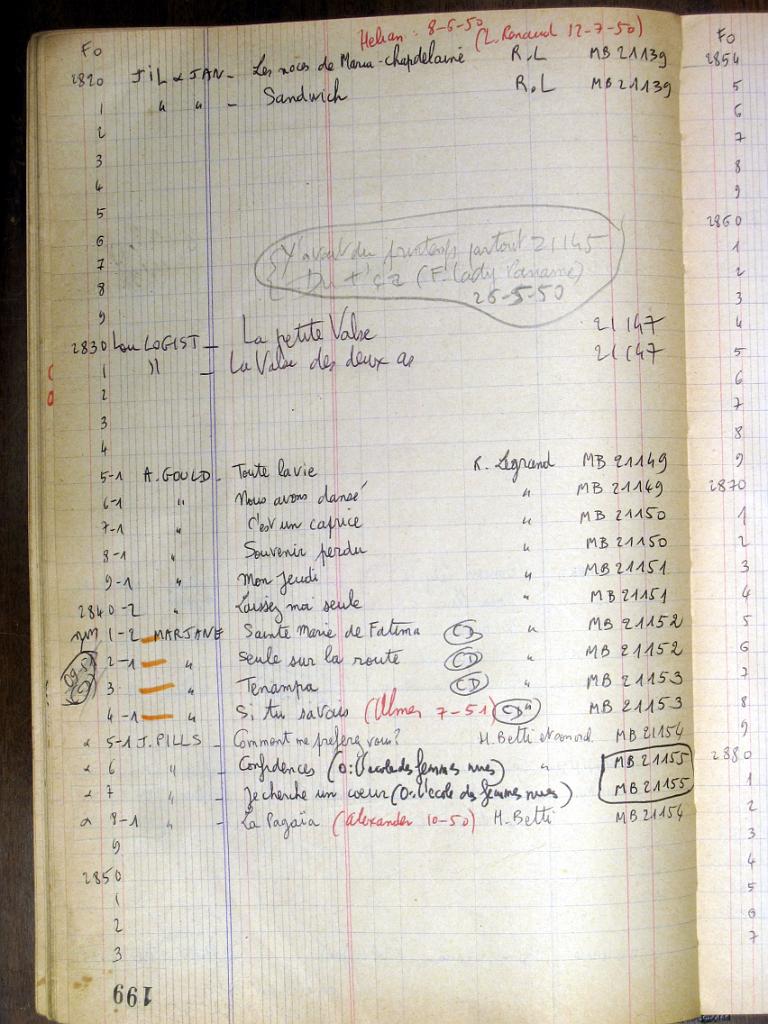 Helian: 8-6-50 (L. Renaud 12-7-50)
FO
2820 JIL & JAN - Les noces de Maria-chapdelaine R.L MB 21139
1 " " - Sandwich R.L MB 21139
2
3
4
5
6 Y'avait du printemps partout 21145
7 (F. Lady Paname)
8 26-5-50
9
2830 Lou LOGIST - La petite Valse 21147
1 " - La Valse des deux as 21147
2
3
4
5-1 A. GOULD - Toute la vie R. Legrand MB 21149
6-1 " Nous avons dansé " MB 21149
7-1 " C'est un caprice " MB 21150
8-1 " Souvenir perdu " MB 21150
9-1 " Mon Jeudi " MB 21151
2840-2 " Laissez moi seule " MB 21151
1-2 MARJANE Sainte Marie de Fatima CD " MB 21152
2-1 " Seule sur la route CD " MB 21152
3 " Tenampa CD " MB 21153
4-1 " Si tu savais (Ulmer 7-51) CD " MB 21153
5-1 J. PILLS - Comment me préférez vous? H. Betti MB 21154
6 " - Confidences (O: l'école des femmes nues) " MB 21155
7 " - Je cherche un coeur (O: l'école des femmes nues) MB 21155
8-1 " - La Pagaïa (Alexander 10-50) H. Betti MB 21154
9
2850
1
2
3
199
FO
2854
5
6
7
8
9
2860
1
2
3
4
5
6
7
8
9
2870
1
2
3
4
5
6
7
8
9
2880
1
2
3
4
5
6
7